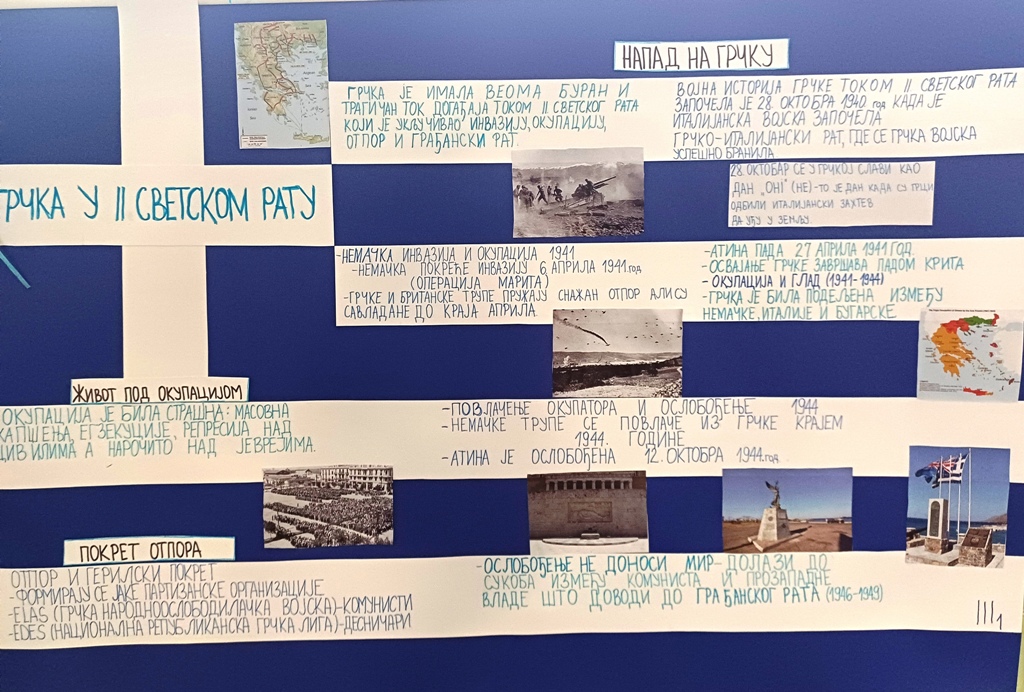 НАПАД НА ГРЧКУ
ГРЧКА ЈЕ ИМАЛА ВЕОМА БУРАН И
ТРАГИЧАН ТОК ДОГАЂАЈА ТОКОМ II СВЕТСКОГ РАТА
КОЈИ ЈЕ УКЉУЧИВАО ИНВАЗИЈУ, ОКУПАЦИЈУ,
ОТПОР И ГРАЂАНСКИ РАТ.
ВОЈНА ИСТОРИЈА ГРЧКЕ ТОКОМ II СВЕТСКОГ РАТА
ЗАПОЧЕЛА ЈЕ 28. ОКТОБРА 1940. год КАДА ЈЕ
ИТАЛИЈАНСКА ВОЈСКА ЗАПОЧЕЛА
ГРЧКО-ИТАЛИЈАНСКИ РАТ, ГДЕ СЕ ГРЧКА ВОЈСКА
УСПЕШНО БРАНИЛА
28. ОКТОБАР СЕ У ГРЧКОЈ СЛАВИ КАО
ДАН „ОНI" (НЕ)-ТО ЈЕ ДАН КАДА СУ ГРЦИ
ОДБИЛИ ИТАЛИЈАНСКИ ЗАХТЕВ
ДА УЂУ У ЗЕМЉУ
ГРЧКА У II СВЕТСКОМ РАТУ
-НЕМАЧКА ИНВАЗИЈА И ОКУПАЦИЈА 1941
-НЕМАЧКА ПОКРЕЋЕ ИНВАЗИЈУ 6. АПРИЛА 1941. год
(ОПЕРАЦИЈА МАРИТА)
-ГРЧКЕ И БРИТАНСКЕ ТРУПЕ ПРУЖАЈУ СНАЖАН ОТПОР АЛИ СУ
САВЛАДАНЕ ДО КРАЈА АПРИЛА.
-АТИНА ПАДА 27 АПРИЛА 1941 ГОД.
-ОСВАЈАЊЕ ГРЧКЕ ЗАВРШАВА ПАДОМ КРИТА
-ОКУПАЦИЈА И ГЛАД (1941-1944)
-ГРЧКА ЈЕ БИЛА ПОДЕЉЕНА ИЗМЕЂУ
НЕМАЧКЕ, ИТАЛИЈЕ И БУГАРСКЕ
ЖИВОТ ПОД ОКУПАЦИЈОМ
ОКУПАЦИЈА ЈЕ БИЛА СТРАШНА: МАСОВНА
ХАПШЕЊА, ЕГЗЕКУЦИЈЕ, РЕПРЕСИЈА НАД
ЦИВИЛИМА А НАРОЧИТО НАД ЈЕВРЕЈИМА.
-ПОВЛАЧЕЊЕ ОКУПАТОРА И ОСЛОБОЂЕЊЕ 1944
-НЕМАЧКЕ ТРУПЕ СЕ ПОВЛАЧЕ ИЗ ГРЧКЕ КРАЈЕМ
1944. ГОДИНЕ
-АТИНА ЈЕ ОСЛОБОЂЕНА 12. ОКТОБРА 1944. год.
ПОКРЕТ ОТПОРА
ОТПОР И ГЕРИЛСКИ ПОКРЕТ
-ФОРМИРАЈУ СЕ ЈАКЕ ПАРТИЗАНСКЕ ОРГАНИЗАЦИЈЕ
-ELAS (ГРЧКА НАРОДНООСЛОБОДИЛАЧКА ВОЈСКА)-КОМУНИСТИ
-EDES (НАЦИОНАЛНА РЕПУБЛИКАНСКА ГРЧКА ЛИГА)-ДЕСНИЧАРИ
-ОСЛОБОЂЕЊЕ НЕ ДОНОСИ МИР- ДОЛАЗИ ДО
СУКОБА ИЗМЕЂУ КОМУНИСТА И ПРОЗАПАДНЕ
ВЛАДЕ ШТО ДОВОДИ ДО ГРАЂАНСКОГ РАТА (1946-1949)
III1